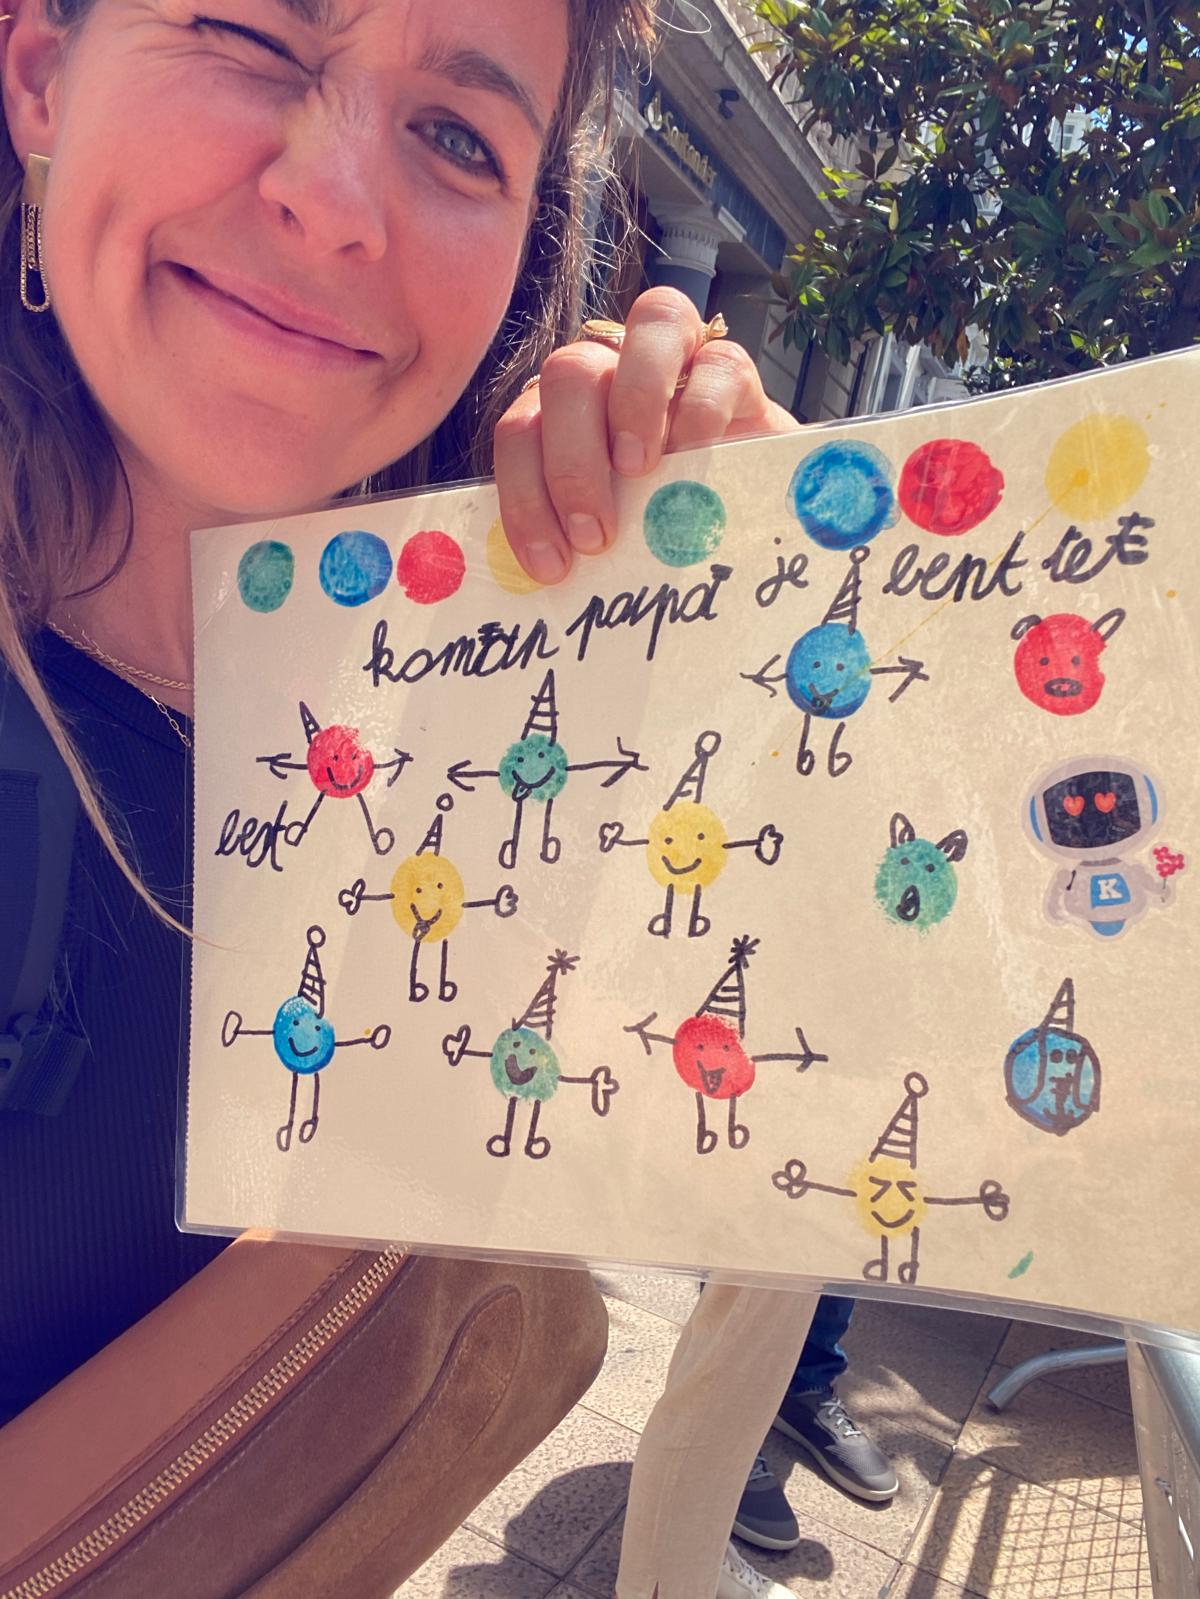 Santander
koman papa je bent te
best
K